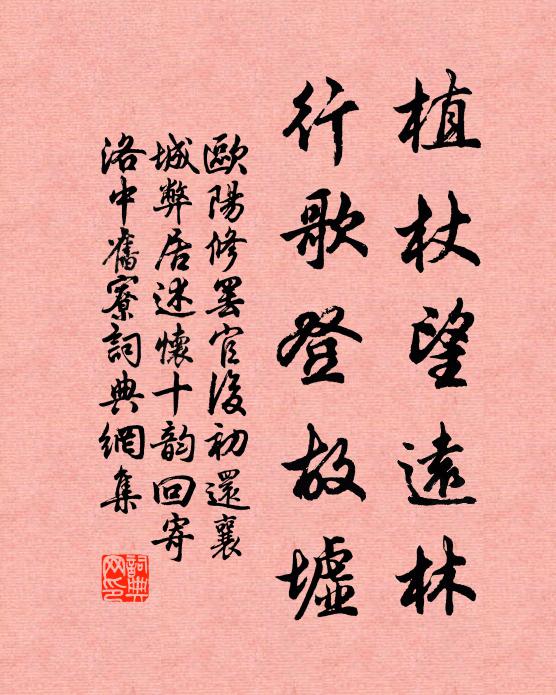 植杖望遠林
行歌登故墟
歐陽修罷官後初還襄
城弊居述懷十韵回寄
洛中舊寮詞典網集
詞典网印